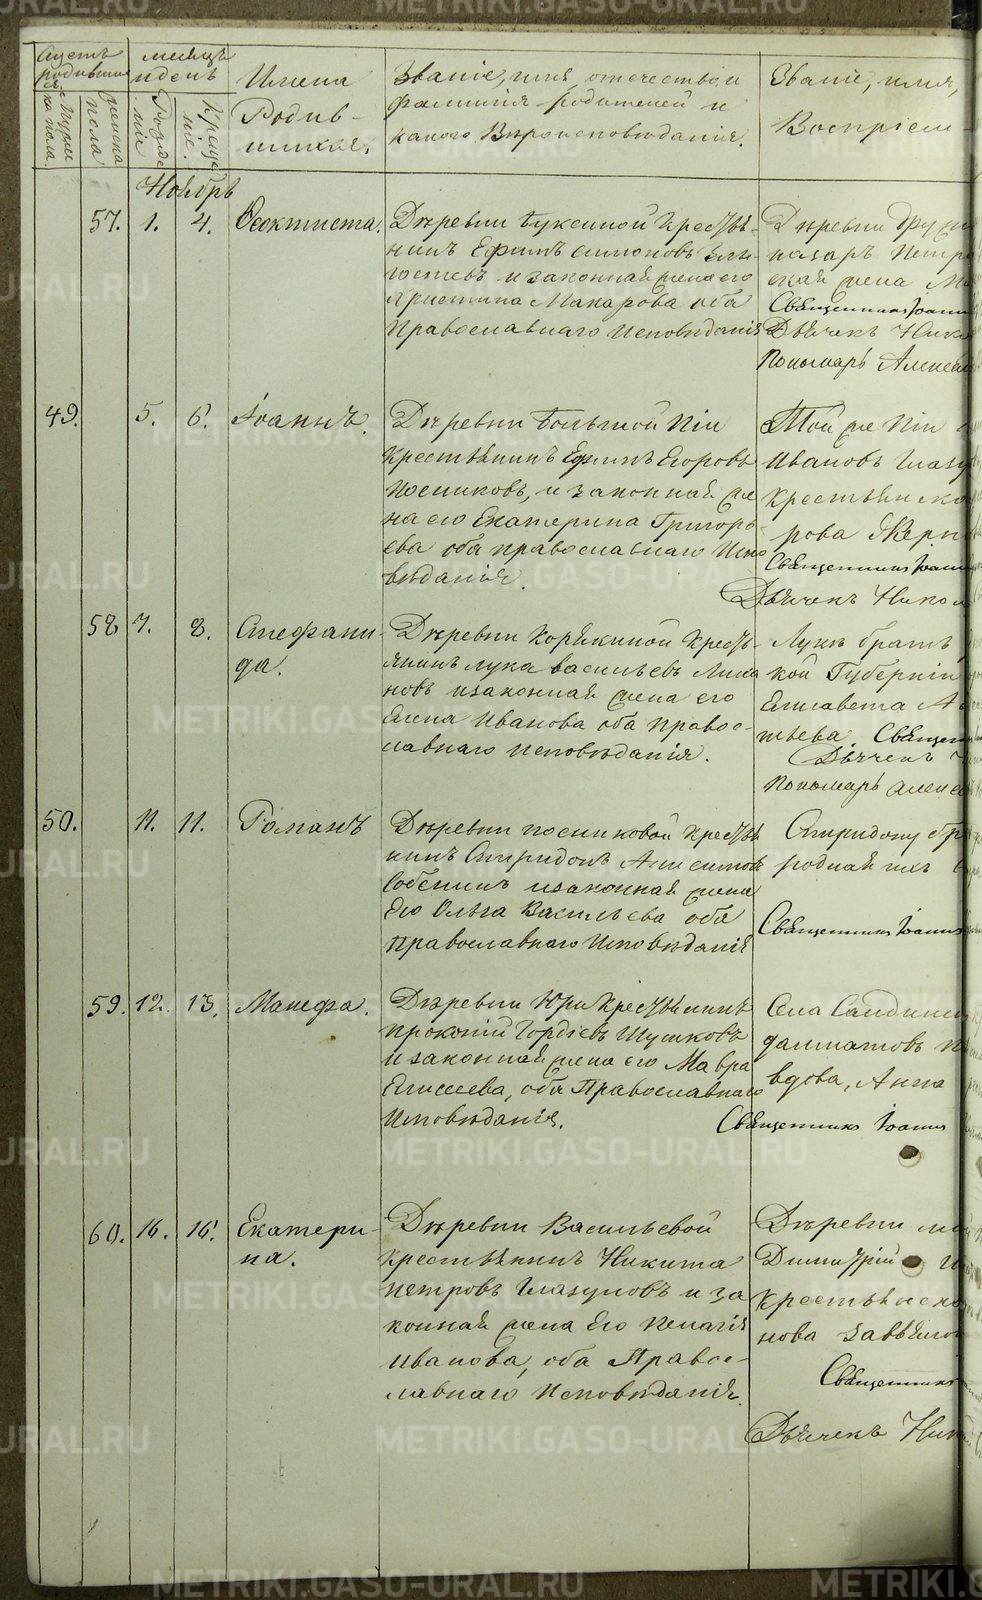 METRIKI.GASO-URAL.RU
Счетъ родившихся
Мужска пола.
женска пола
месяцъ и день
Рожденiе
Крещенiе.
Имена Родившихся.
Званiе, имя, отечество, и
фамилiя родителей и
какого Вѣроисповѣданiя.
Званiе, имя,
Воспрiем
Ноябрь
57. 1. 4. Ѳеоктиста.
Деревни Буксиной Кресть-
янинъ Ефимъ Симоновъ
и законная жена его
Христина Макарова оба
Православнаго Исповѣданiя
Деревни
назаръ Петро
ская жена
Священникъ Iоанн
Дьячекъ Нико
Пономарь Алексе
49. 5. 6. Iоаннъ.
Деревни Большой Тiи
Крестьянинъ Ефимъ Егоровъ
Посниковъ, и законная же
на его Екатерина Григорь
ева оба православнаго Испо
вѣданiя.
Той же Тiи
Ивановъ Глазу
крестьянско
рова
Священникъ Iоанн
Дьячекъ Никол
58 7. 8. Стефани-
да.
Деревни Корякиной Кресть-
янинъ лука васильевъ
новъ и законная жена его
Елена Иванова оба Правос-
лавнаго исповѣданiя.
Луки братъ
кой Губернiи
Елисавета А
тьева Священ
Дьячекъ
Пономарь алексе
50. 11. 11. Романъ
Деревни посниковой Крестья
нинъ Спиридонъ Анисимовъ
Собенинъ и законная жена
Его Ольга Васильева оба
Православнаго Исповѣданiя
Спиридону бр
родная ихъ
Священникъ Iоанн
59. 12. 13. Манефа.
Деревни Юри Крестьянинъ
прокопiй Гордѣевъ Шушковъ
и законная жена его Мавра
Елисеева, оба Православнаго
Исповѣданiя.
Села
далматовъ
вдова, Анна
Священникъ Iоанн
60. 16. 16. Екатери-
на.
Деревни Васильевой
крестьянинъ Никита
петровъ Глазуновъ и за
конная жена Его Пелагiя
Иванова, оба Правос-
лавнаго Исповѣданiя.
Деревни
Димитрiй
Крестьянско
нова
Священникъ
Дьячекъ Ник